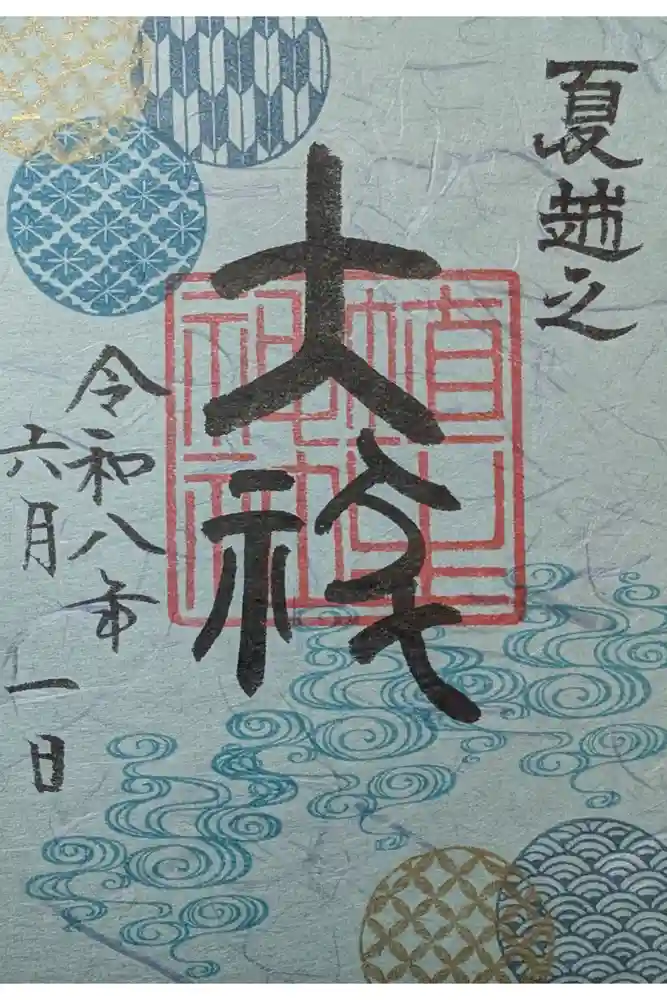 夏越之
大祓
神社
令和八年
六月一日